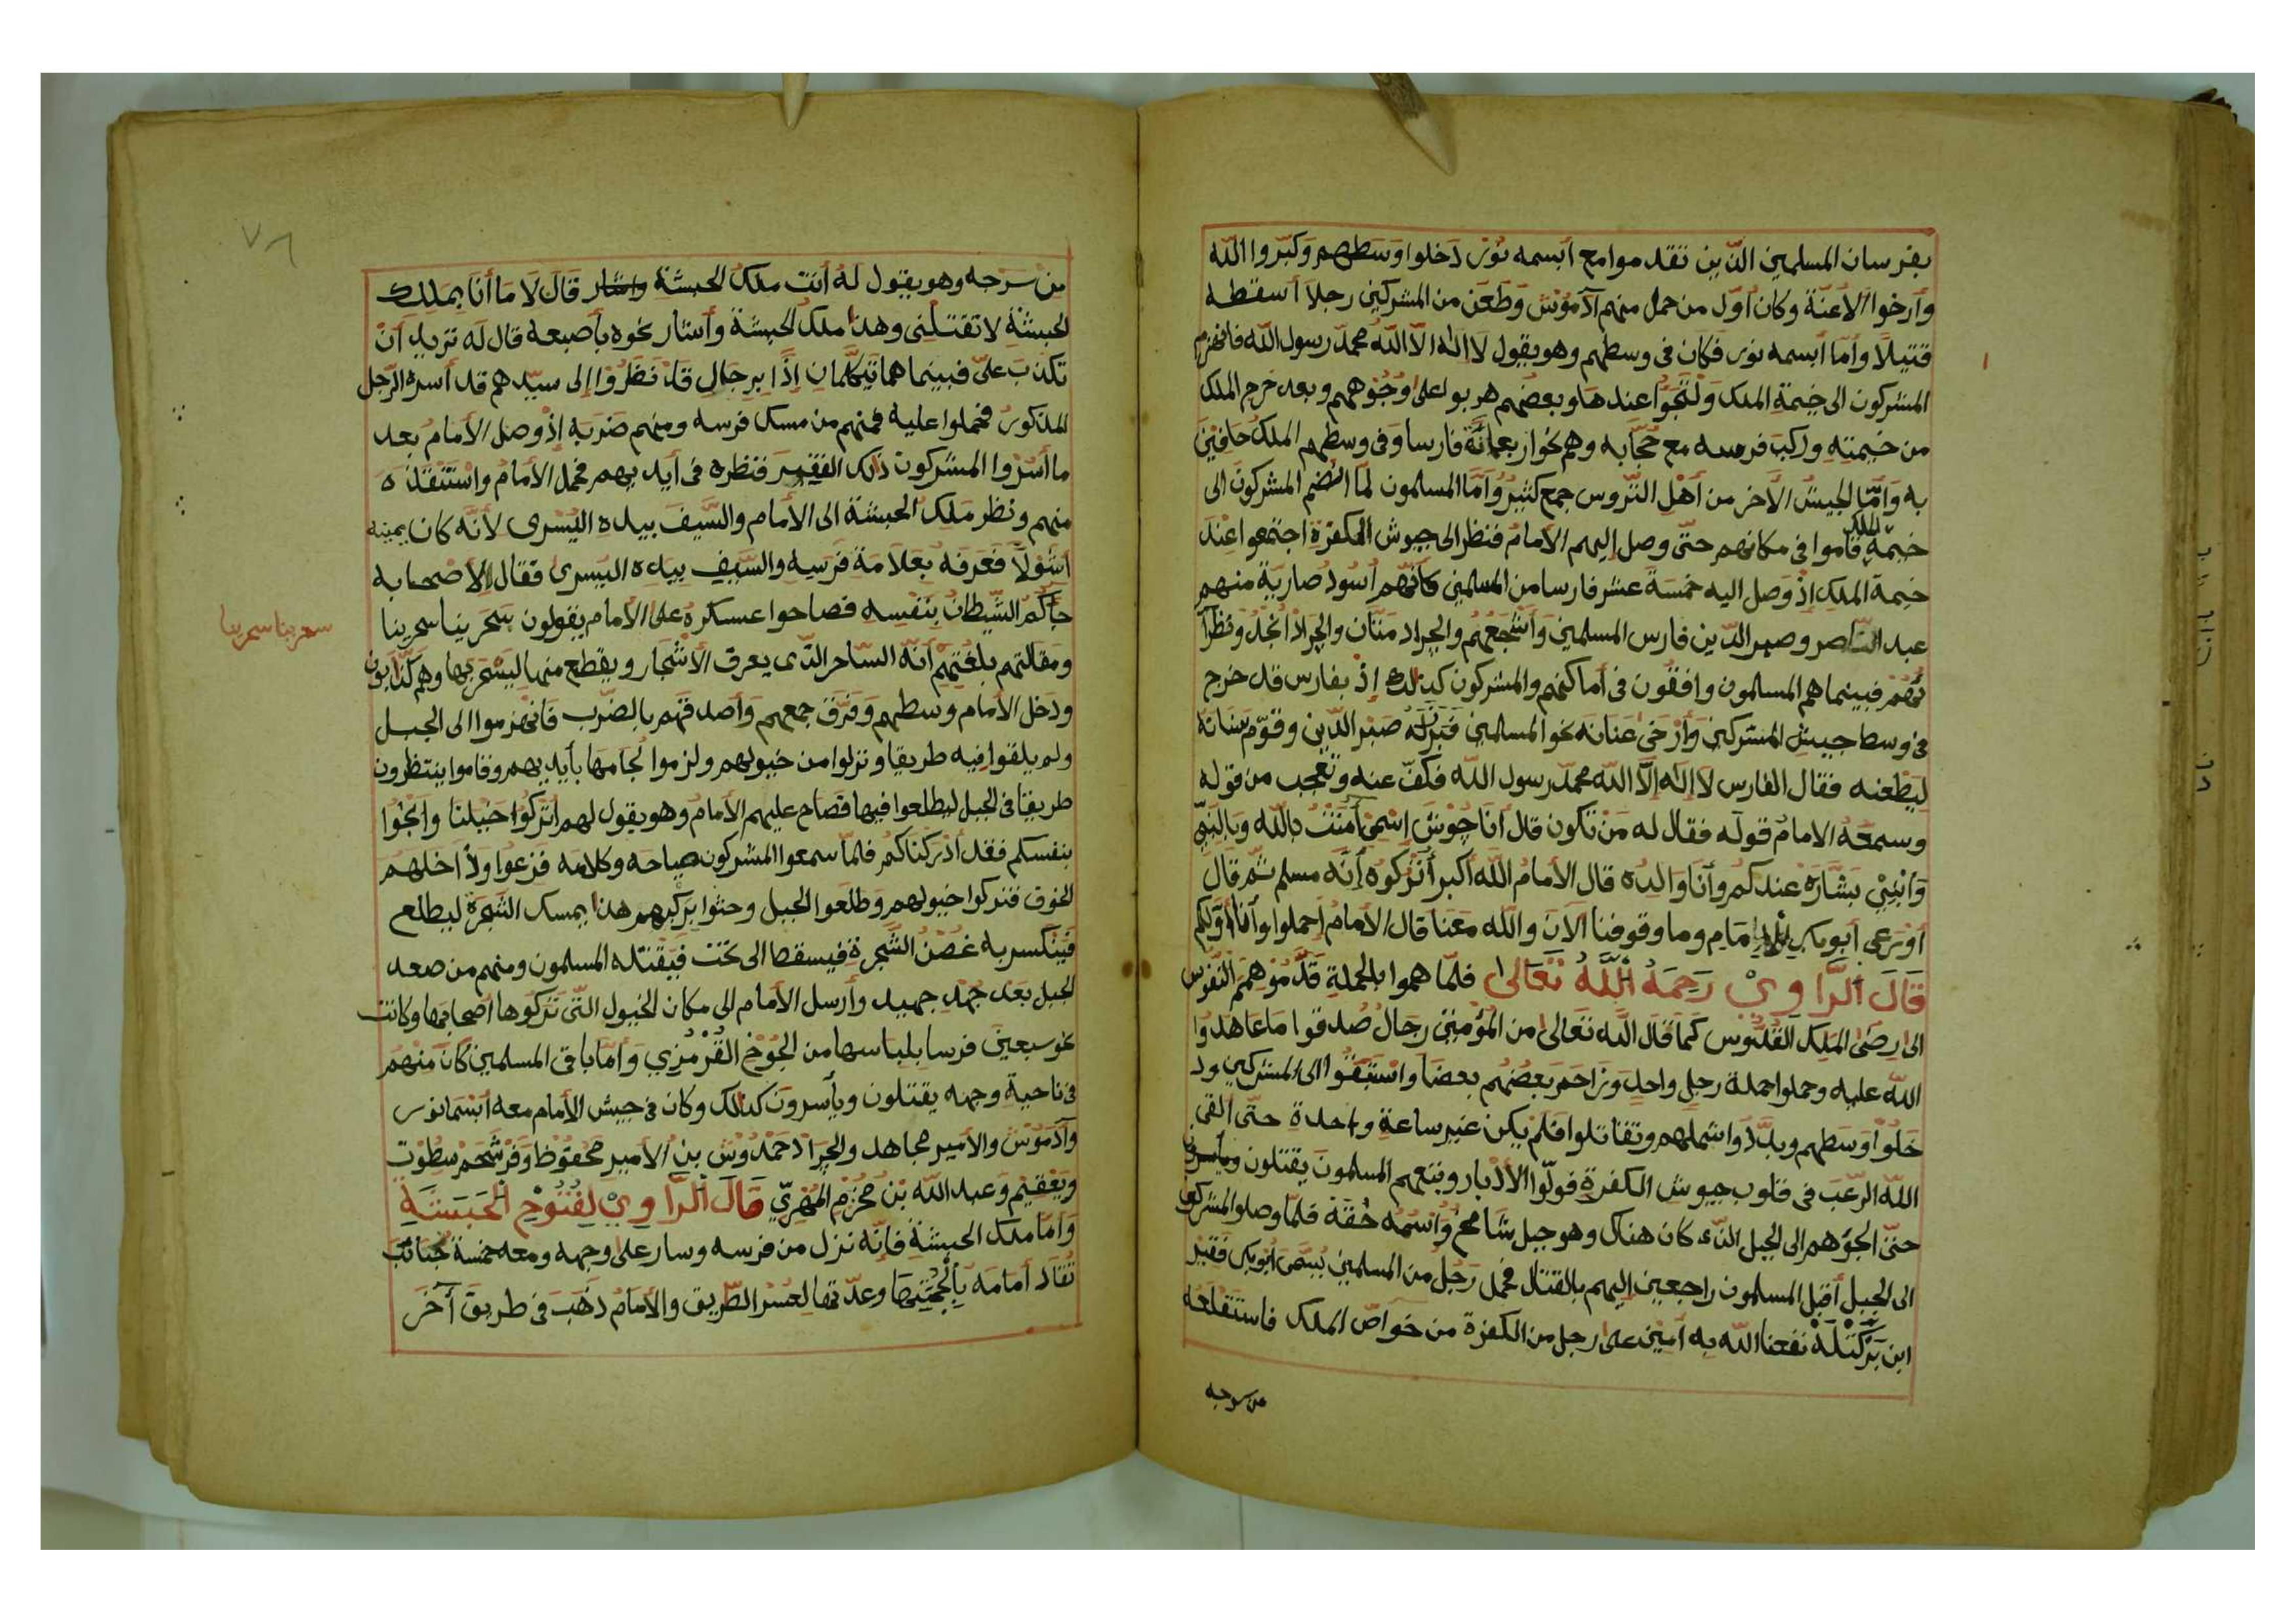 بفرسان المسلمين الذين تقدموا مع أبسمه نور دخلوا وسطهم وكبّروا الله
وأرخوا الأعنّة وكان أول من حمل منهم آدموش وطعن من المشركين رجلا أسقطه
قتيلًا وأما أبسمه نور فكان في وسطهم وهو يقول لا اله الا الله محمد رسول الله فانهزم
المشركون الى خيمة الملك والتجوا عندها وبعضهم هربوا على وجوههم وبعد خرج الملك
من خيمته وركب فرسه مع حجّابه وهم نحو اربعمائة فارسا وفي وسطهم الملك حافين
به وأمّا الجيش الآخر من أهل التروس جمع كثير وأما المسلمون لما انضم المشركون الى
خيمة الملك قاموا في مكانهم حتّى وصل إليهم الأمام فنظر الى جيوش الكفرة اجتمعوا عند
خيمة الملك إذ وصل اليه خمسة عشر فارسا من المسلمين كأنهم أسود ضارية منهم
عبد الناصر وصبر الدين فارس المسلمين وأشجعهم والجراد متان والجراد أنجد ونظرآ
ئهم فبينما هم المسلمون واففون في أماكنهم والمشركون كذلك إذ بفارس قد خرج
في وسط جيش المشركين وأرخى عنانه نحو المسلمين فبرز له صبر الدين وقوّم سنانه
ليطعنه فقال الفارس لا إله إلا الله محمد رسول الله فكفّ عنه وتعجب من قوله
وسمعه الامام قوله فقال له من تكون قال أنا جوش إسمي آمنت بالله وبالنبي
وابني بشاره عندكم وأنا والده قال الأمام الله أكبر أتركوه إنّه مسلم ثم قال
أورعي أبوبكر للإمام وما وقوفنا الآن والله معنا قال الأمام إحملوا وأنا أوّلكم
قَالَ الرَّاوِيْ رَحِمَهُ اللهُ تَعَالى فلمّا هموا بالحملة قدّموهم النفوس
الى رضى الملك القدوس كما قال الله تعالى من المؤمنين رجال صدقوا ما عاهدوا
الله عليه وحملوا حملة رجل واحد وزاحم بعضهم بعضا واستبقوا الى المشركين ود
خلوا وسطهم وبدّدوا شملهم وتقاتلوا فلم يكن غير ساعة واحدة حتى القى
الله الرّعب في قلوب جيوش الكفرة فولّوا الأدبار وتبعهم المسلمون يقتلون ويأسرون
حتّى الجؤهم الى الجبل الذي كان هناك وهو جبل شامخ واسمه حقة فلمّا وصلوا المشركون
الى الجبل أقبل المسلمون راجعين اليهم بالقتال فحمل رجل من المسلمين يسمى أبوبكر فقير
ابن يركتله نفعنا الله به آمين على رجل من الكفرة من خواص الملك فاستقلعه
من سرجه
٧٦
من سرجه وهو يقول له أنت ملك الحبشة واشار قال لا ما أنا بملك
الحبشة لا تقتلني وهذا ملك الحبشة وأشار نحوه بأصبعه قال له تريد أن
تكذب عليّ فبينما هما يتكلّمان إذا برجال قد نظروا إلى سيّدهم قد أسره الرّجل
المذكور فحملوا عليه فمنهم من مسك فرسه ومنهم ضربه إذ وصل الأمام بعد
ما أسروا المشركون ذلك الفقير فنظره في أيديهم فحمل الأمام واستنقذه
منهم ونظر ملك الحبشة الى الأمام والسّيف بيده اليسرى لأنّه كان يمينه
اشولًا فعرفه بعلامة فرسه والسيف بيده اليسرى فقال لأصحابه
جآكم الشّيطان بنفسه فصاحوا عسكره على الأمام يقولون سحرينا سحرينا
سحرينا سحرينا
ومقالتهم بلغتهم أنّه السّاحر الذي يعرف الأشجار ويقطع منها ليسحر بها وهم كذّابون
ودخل الأمام وسطهم وفرّق جمعهم وأصدقهم بالضّرب فانهزموا الى الجبل
ولم يلقوا فيه طريقا ونزلوا من خيولهم ولزموا لجامها بأيديهم وقاموا ينتظرون
طريقا في الجبل ليطلعوا فيها فصاح عليهم الأمام وهو يقول لهم أتركوا خيلنا وانجوا
بنفسكم فقد أدركناكم فلمّا سمعوا المشركون صياحه وكلامه فزعوا ولاّ اخلهم
الخوف فتركوا خيولهم وطلعوا الجبل وحثوا بركبهم هذا يمسك الشّجرة ليطلع
فينكسر به غصن الشّجرة فيسقط الى تحت فيقتله المسلمون ومنهم من صعد
الجبل بعد جهد جهيد وأرسل الأمام الى مكان الخيول التي تركوها أصحابها وكانت
نحو سبعين فرسا بلباسها من الجوخ القرمزي وأمّا باقي المسلمين كان منهم
في ناحية وجهه يقتلون ويأسرون كذلك وكان في جيش الأمام معه أبسمانور
وآدموش والأمير مجاهد والجراد حمدوش بن الأمير محفوظ وفرشحم سطوت
ويعقيم وعبد الله بن مخزم المهري قَالَ الرَّاوِيْ لِفُتُوْحِ الْحَبَشَةِ
وأما ملك الحبشة فإنّه نزل من فرسه وسار على وجهه ومعه خمسة نجائب
تقاد أمامه بألجمتها وعدّتها لعسر الطّريق والأمام ذهب في طريق آخر